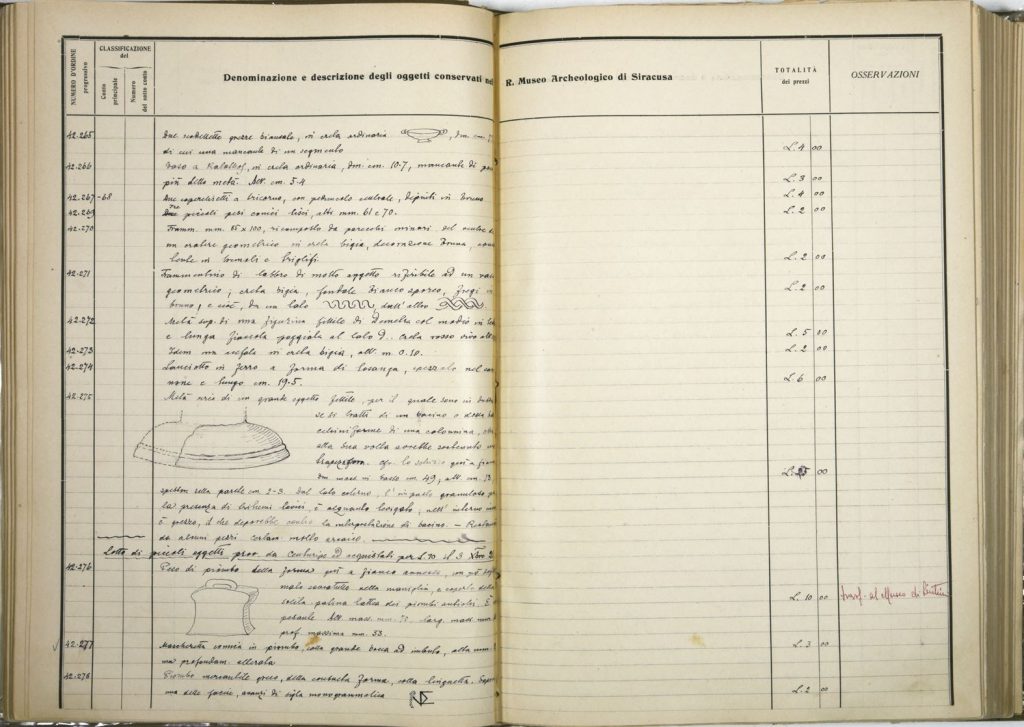 NUMERO D'ORDINE progressivo
CLASSIFICAZIONE del
Conto principale
Numero del sotto conto
Denominazione e descrizione degli oggetti conservati nel R. Museo Archeologico di Siracusa
TOTALITÀ dei prezzi
OSSERVAZIONI
42.265 Due scodellette grezze biansate, in creta ordinaria, dm. cm.
di cui una mancante di un segmento L. 4 00
42.266 Vaso a Kalathos, in creta ordinaria, dm. cm. 10-7, mancante di
più della metà. Alt. cm. 5-4 L. 3 00
42.267-68 Due coperchietti a tricorno, con peduncolo centrale, dipinti in bruno L. 4 00
42.269 Tre piccoli pesi conici lisci, alti mm. 61 e 70. L. 2 00
42.270 Framm. mm. 85 x 100, ricomposto da parecchi minori, del
un cratere geometrico in creta bigia, decorazione bruna,
in tremoli e triglifi. L. 2 00
42.271 Frammentino di labbro di molto oggetto riferibile ad un vaso
geometrico; creta bigia, fondale bianco sporco, fregi in
bruno, e cioè, da un lato dall'altro L. 2 00
42.272 Metà sup. di una figurina fittile di Demetra col modio in
e lunga fiaccola poggiata al lato d. creta rosso vivo L. 5 00
42.273 Idem una in creta bigia, alt. m. 0.10. L. 2 00
42.274 Lanciotto in ferro a forma di losanga, spezzato nel
none e lungo cm. 19-5. L. 6 00
42.275 Metà circa di un grande oggetto fittile, per il quale sono in
se si tratti di un bacino o della
di una colonnina,
alla sua volta avrebbe sostenuto
cfr. lo schizzo qui a
dm. mass. in basso cm. 49, alt. cm. L. 00
spessore nella parete cm. 2-3. Dal lato esterno, l'impasto granuloso
la presenza di tritumi lavici, è alquanto levigato, nell'interno
è grezzo, il che deporrebbe contro la interpretazione di bacino. –
da alcuni pezzi certam. molto arcaico.
Lotto di piccoli oggetti prov. da Centuripe ed acquistati per L. 10 il 3 Xbre
42.276 Peso di piombo della forma qui a fianco annessa, con
malo soprattutto nella maniglia, e coperto della
solita patina lattea dei piombi antichi. È
pesante. Alt. mass. mm. larg. mass. mm.
prof. massima mm. 53. L. 10 00 trasf. al Museo di
42.277 Mascheretta comica in piombo, colla grande bocca ad imbuto, alta mm.
ma profondam. alterata L. 3 00
42.278 Piombo mercantile greco, della consueta forma, colla linguetta.
una delle facce, avanzi di sigla monogrammatica L. 2 00